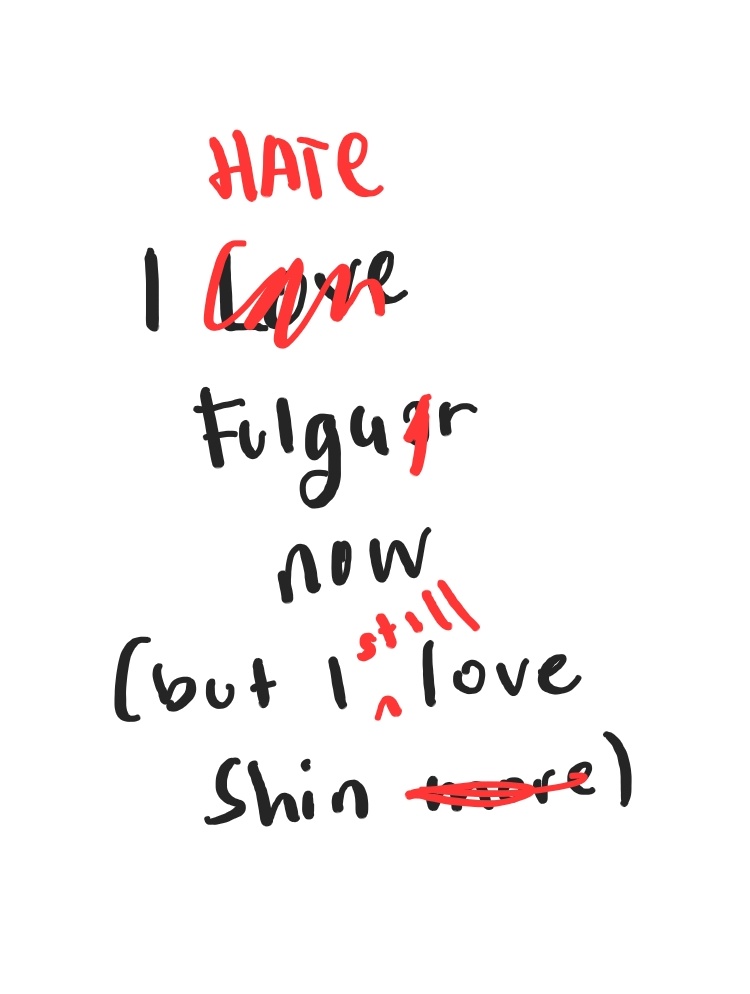 HATE
I Love
Fulguar
now
(but I still love
Shin more)